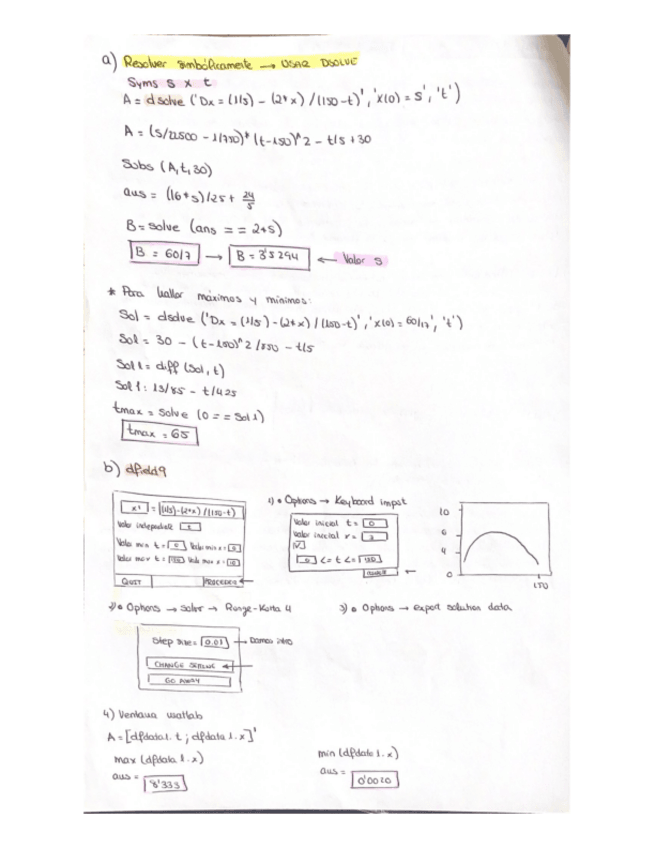 a) Resolver simbólicamente → USAR DSOLVE
Syms s x t
A = dsolve ('Dx = (1/5) - (2*x) / (150-t)', 'x(0) = s', 't')
A = (s/22500 - 1/750)* (t-150)^2 - t/5 + 30
Subs (A,t,30)
ans = (16*s)/25 + 24/5
B = solve (ans == 2*s)
B = 60/17 → B = 3'5294 ← Valor s
* Para hallar máximos y mínimos:
Sol = dsolve ('Dx = (1/5) - (2*x) / (150-t)', 'x(0) = 60/17', 't')
Sol = 30 - (t-150)^2 /850 - t/5
Sol1 = diff (Sol, t)
Sol1: 13/85 - t/425
tmax = solve (0 == Sol1)
tmax = 65
b) dfield9
x' = (1/5)-(2*x)/(150-t)
Valor independiente t
Valor min t = 0 Valor min x = 0
Valor max t = 150 Valor max x = 10
QUIT PROCEED ←
1) • Options → Keyboard input
Valor inicial t = 0
Valor inicial x =
0 <= t <= 150
←
10
6
4
0
2) • Options → Solver → Runge-Kutta 4
3) • Options → export solution data
Step size = 0.01 →
CHANGE SETTINGS ←
GO AWAY
4) Ventana matlab
A = [dfdata1.t ; dfdata1.x]'
max (dfdata1.x)
ans = 8'333
min (dfdata1.x)
ans = 0'0020